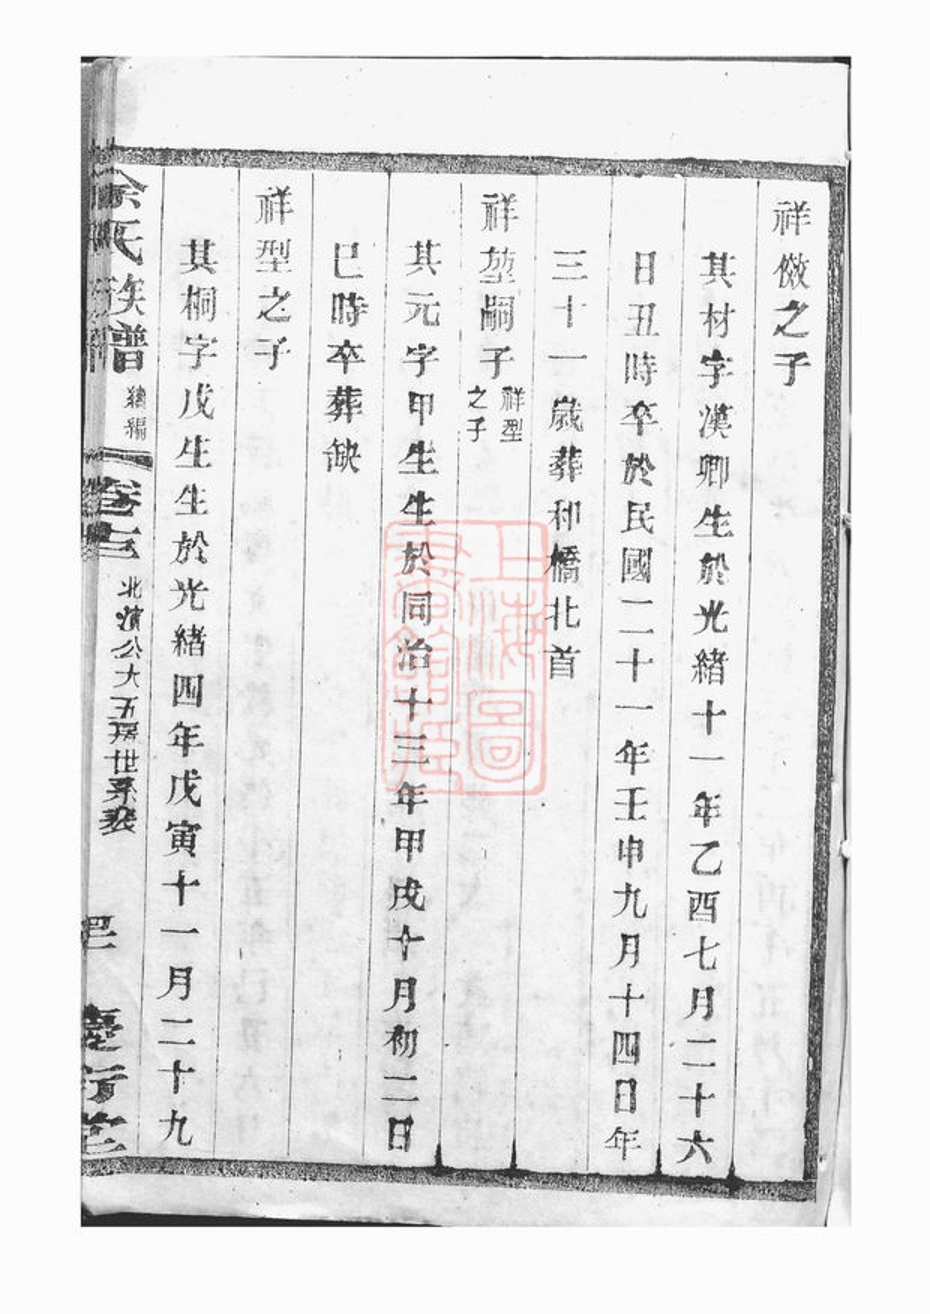 祥儆之子
其材字漢卿生於光緒十一年乙酉七月二十六
日丑時卒於民國二十一年壬申九月十四日年
三十一歲葬和橋北首
祥堃嗣子祥型之子
其元字甲生生於同治十三年甲戌十月初二日
巳時卒葬缺
祥型之子
其桐字戊生生於光緒四年戊寅十一月二十九
氏族譜 續編 卷 北濱公大五房世系表
上海圖書館藏